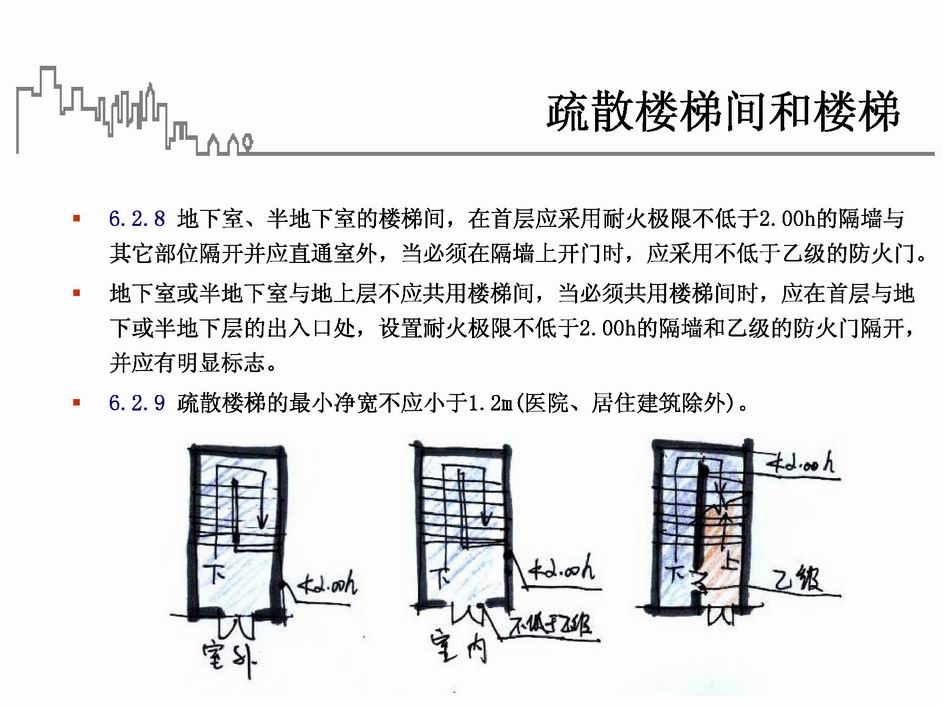 疏散楼梯间和楼梯
6.2.8 地下室、半地下室的楼梯间，在首层应采用耐火极限不低于2.00h的隔墙与
其它部位隔开并应直通室外，当必须在隔墙上开门时，应采用不低于乙级的防火门。
地下室或半地下室与地上层不应共用楼梯间，当必须共用楼梯间时，应在首层与地
下或半地下层的出入口处，设置耐火极限不低于2.00h的隔墙和乙级的防火门隔开，
并应有明显标志。
6.2.9 疏散楼梯的最小净宽不应小于1.2m(医院、居住建筑除外)。
下
≮2.00h
室外
下
≮2.00h
不低于乙级
室内
≮2.00h
下
上
乙级